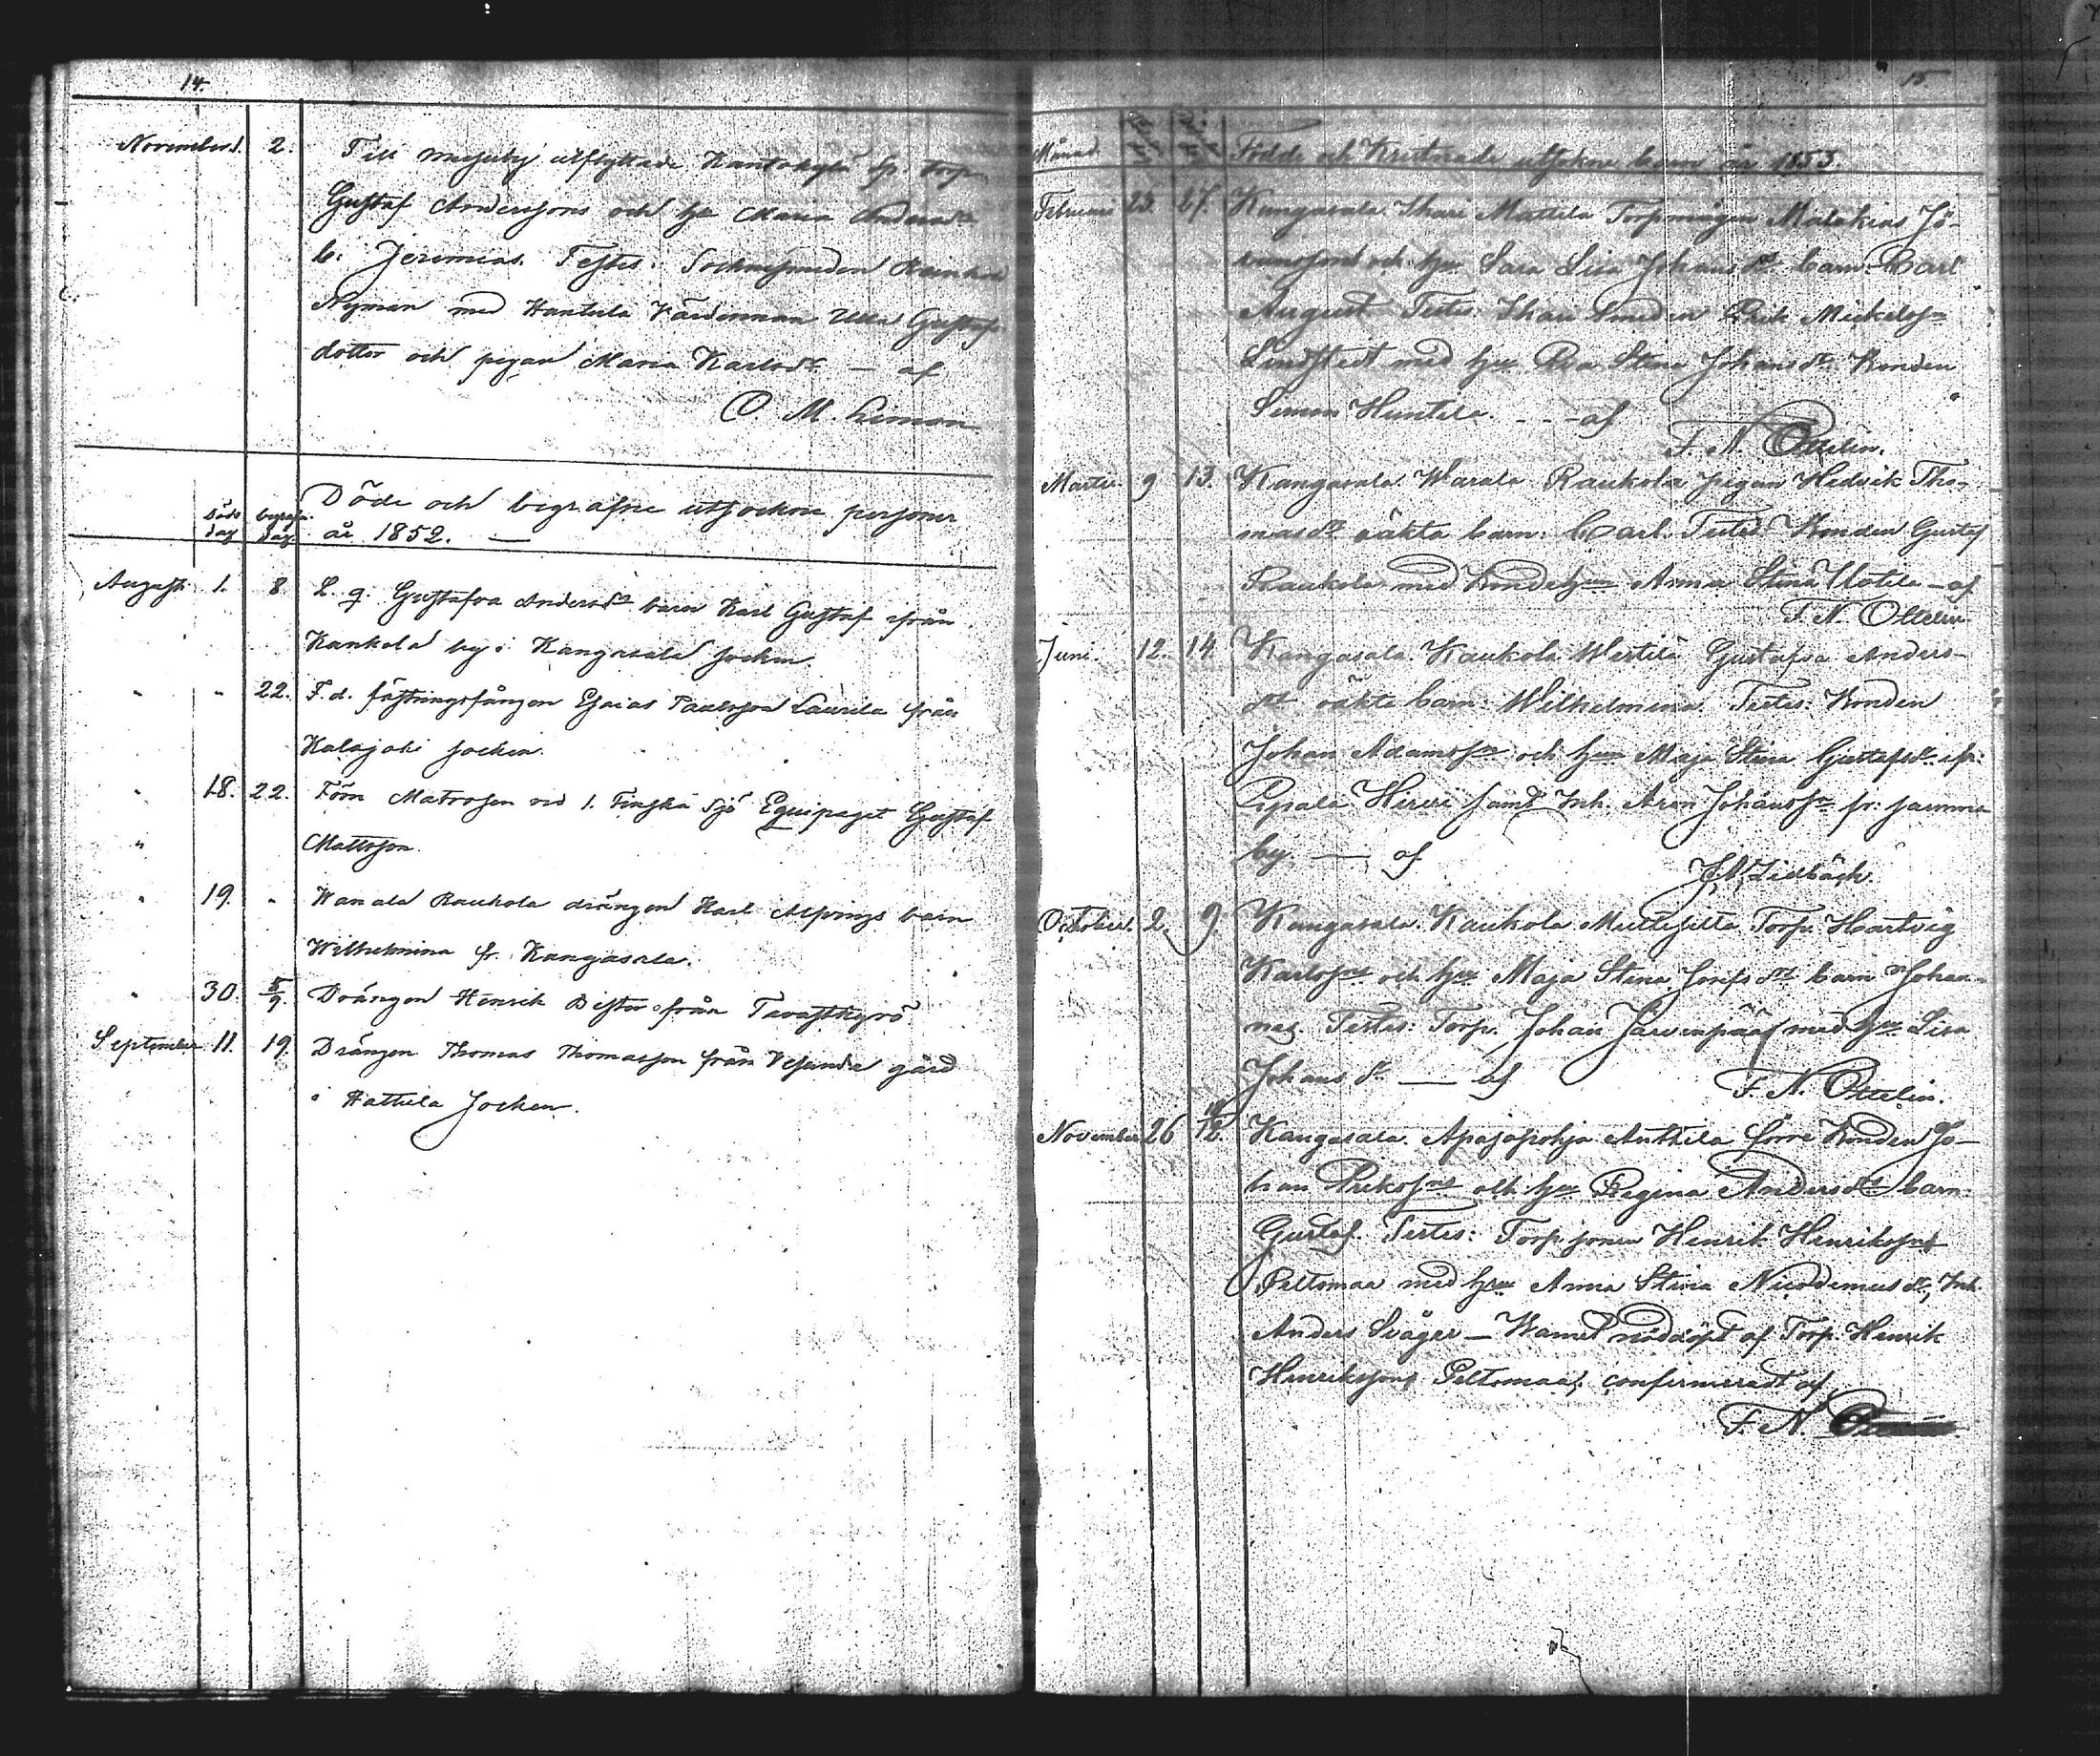 14.
November 1. 2. Till utflyttade Kantokylä fr. torp.
Gustaf Anderssons och h:u Maria Andersdr
b: Jeremias. Testes: Socknesmeden
Nyman med Hantula Värdinnan Ulla Gustafs-
dotter och pigan Maria Karlsdr — af
O. M. Leman
Döds dag begrafn. dag Döde och begrafne utsockne personer
år 1852. —
Augusti 1. 8. L. q. Gustafva Andersdr barn Karl Gustaf ifrån
Kaukola by i Kangasala socken
" " 22. F. d. fästningsfången Esaias Paulsson Laurila från
Kalajoki socken.
" 18. 22. Förre Matrosen vid 1. Finska Sjö Equipaget Gustaf
" Mattsson.
" 19. " Raukola drängen Karl barn
Wilhelmina fr. Kangasala.
" 30. 5/9. Drängen Henrik från Tavastkyrö
September 11. 19. Drängen Thomas Thomasson från Vesunda gård
i Hattula Socken.
15.
Månad Födde och Kristnade utsokne barn år 1853.
Februari 25. 27. Kangasala Ihari Mattila Torpmågen Malakias Jö-
ransson och h:u Sara Lisa Johansdr barn: Carl
August Testes: Ihari Smeden Erik Mickelsn
Lindstedt med h:u Eva Stina Johansdr Bonden
Simon Huntila. - - - af
F. N. Ottelin.
Martii. 9 13. Kangasala. Warala Raukola pigan Hedvik Tho-
masdrs oäkta barn: Carl. Testes Bonden Gustaf
Raukola med Bondehun Anna Stina Uotila — af
F. N. Ottelin
Juni. 12. 14. Kangasala. Kaukola Wertilä Gustafva Anders-
drs oäkta barn: Wilhelmina. Testes: Bonden
Johan Adamssn och h:un Maja Stina Gustafsdr ifr:
Pispala Hirvi samt Inh. Aron Johanssn fr: samma
by. — af
J. N. Lillbäck.
October. 2. 9. Kangasala. Kaukola Torp. Hartvig
Karlssns och h:us Maja Stina Josefsdrs barn Johan-
nes. Testes: Torp. Johan Järvenpää med h:u Lisa
Johansdr — af F. N. Ottelin.
November 26 12. Kangasala. Apajapohja Anttila förre Bonden Jo-
han Erikssns och h:us Regina Andersdrs barn:
Gustaf. Testes: Torp. sonen Henrik Henrikssn
Peltomaa med h:u Anna Stina Nicodemusdr, Inh.
Anders Svåger — Barnet nöddöpt af Torp. Henrik
Henriksson Peltomaa, confirmeradt af
F. N. Ottelin